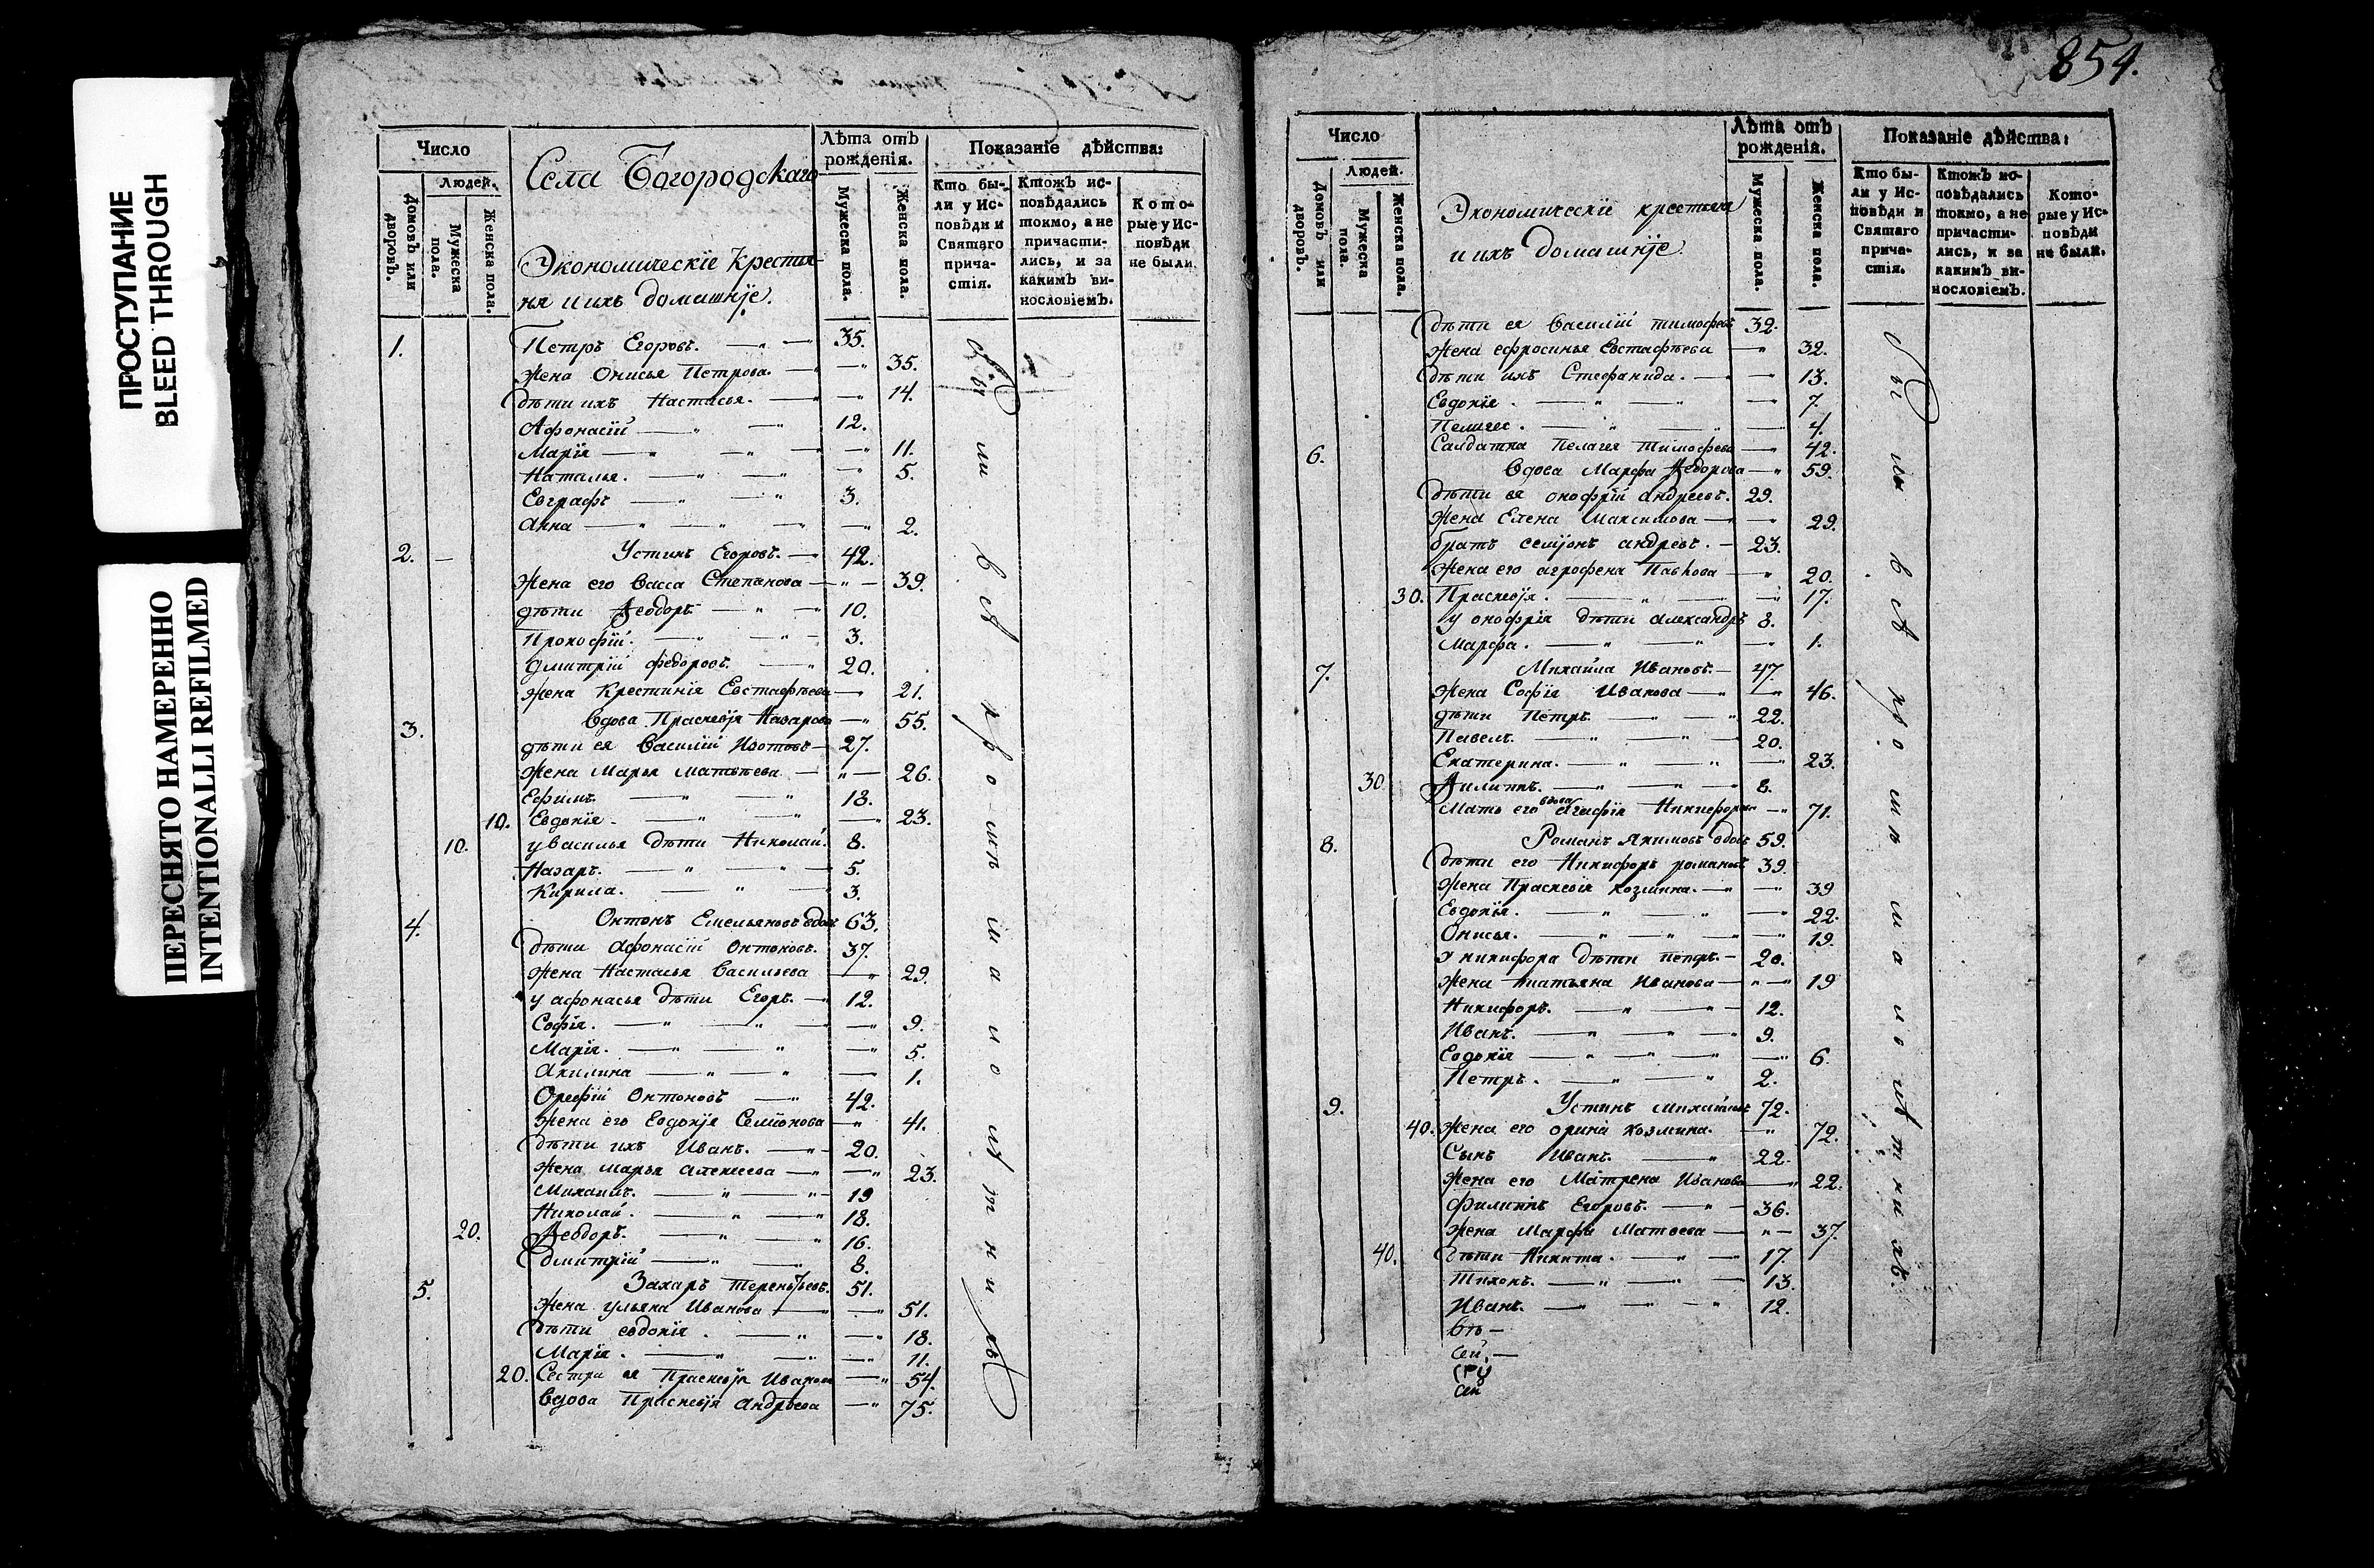 ПРОСТУПАНИЕ
BLEED THROUGH
ПЕРЕСНЯТО НАМЕРЕННО
INTENTIONALLI REFILMED
Число
Людей.
Домовъ или дворовъ.
Мужеска пола.
Женска пола.
Села Богородскаго
Экономическіе крестья
ня и ихъ домашніе.
Лѣта отъ рожденія.
Мужеска пола.
Женска пола.
Показаніе дѣйства:
Кто бы-
ли у Ис-
повѣди и
Святаго
прича-
стія.
Ктожъ ис-
повѣдались
токмо, а не
причасти-
лись, и за
какимъ ви-
нословіемъ.
Кото-
рые у Ис-
повѣди
не были.
1. Петръ Егоровъ. 35.
жена Онисья Петрова. 35.
дѣти ихъ Настасья. 14.
Афонасій 12.
Марія 11.
Наталья. 5.
Евграфъ 3.
Анна 2.
2. Устинъ Егоровъ. 42.
жена его Васса Степанова 39.
дѣти Ѳеодоръ 10.
Прокофій. 3.
Дмитрій Федоровъ. 20.
жена Крестинія Евстафьева 21.
3. Вдова Праскевія Назарова 55.
дѣти ея Василій Изотовъ 27.
жена Марья Матвѣева 26.
Ефимъ. 18.
10. Евдокія. 23.
10. у Василья дѣти Николай. 8.
Назаръ. 5.
Кирила. 3.
4. Онтонъ Емельяновъ вдовъ 63.
дѣти Афонасій Онтоновъ. 37.
жена Настасья Васильева 29.
у Афонасья дѣти Егоръ. 12.
Софія. 9.
Марія. 5.
Акилина 1.
Орефій Онтоновъ 42.
жена его Евдокія Семіонова 41.
дѣти ихъ Иванъ. 20.
жена Марья Алексеева 23.
Михаилъ. 19
Николай. 18.
20. Ѳеодоръ. 16.
Дмитрій 8.
5. Захаръ Терентьевъ. 51.
жена Ульяна Иванова 51.
дѣти Евдокія. 18.
Марія. 11.
20. Сестра ея Праскевія Иванова 54.
вдова Праскевія Андрѣева 75.
были всѣ кромѣ малолѣтнихъ
854.
Число
Людей.
Домовъ или дворовъ.
Мужеска пола.
Женска пола.
Экономическіе крестьяня
и ихъ домашніе.
Лѣта отъ рожденія.
Мужеска пола.
Женска пола.
Показаніе дѣйства:
Кто бы-
ли у Ис-
повѣди и
Святаго
прича-
стія.
Ктожъ ис-
повѣдались
токмо, а не
причасти-
лись, и за
какимъ ви-
нословіемъ.
Кото-
рые у Ис-
повѣди
не были.
дѣти ея Василій Тимофеевъ 32.
жена Ефросинья Евстафьева 32.
дѣти ихъ Стефанида. 13.
Евдокія. 7.
4.
6. Салдатка Пелагея Тимофѣева 42.
Вдова Марфа Ѳедорова 59.
дѣти ея Онофрій Андреевъ. 29.
жена Елена Максимова 29.
братъ Семіонъ Андреевъ. 23.
жена его Агрофена Павлова 20.
30. Праскевія. 17.
у Онофрія дѣти Александръ 8.
Марфа. 1.
7. Михайла Ивановъ. 47.
жена Софія Иванова 46.
дѣти Петръ. 22.
Павелъ. 20.
Екатерина. 23.
30 Ѳилиппъ. 8.
Мать его вдова Агафія Никифорова 71.
8. Романъ Якимовъ вдовъ 59.
дѣти его Никифоръ Романовъ 39.
жена Праскевія Козмина. 39
Евдокія. 22.
Онисья. 19.
у Никифора дѣти Петръ. 20.
жена Татьяна Иванова 19
Никифоръ. 12.
Иванъ. 9.
Евдокія 6.
Петръ. 2.
9. Устинъ Михайловъ 72.
40. жена его Орина Козмина. 72.
Сынъ Иванъ. 22.
жена его Матрена Иванова 22.
Филиппъ Егоровъ. 36.
жена Марфа Матвеева 37.
40. дѣти Никита. 17.
Тихонъ. 13.
Иванъ. 12.
были всѣ кромѣ малолѣтнихъ.